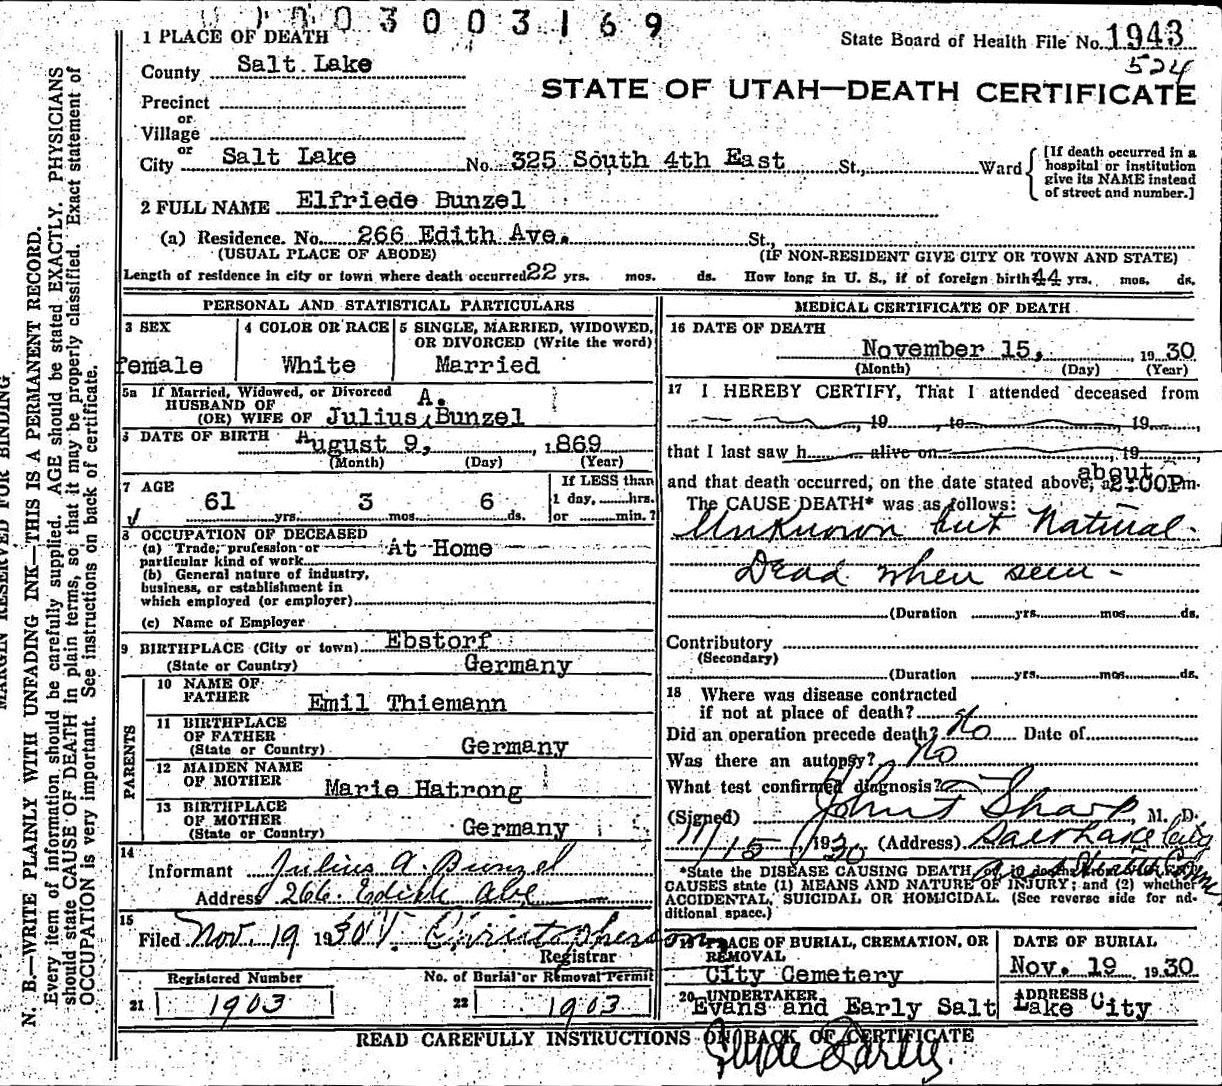 3003169
1 PLACE OF DEATH
State Board of Health File No. 1943
524
County Salt Lake
STATE OF UTAH—DEATH CERTIFICATE
Precinct
or
Village
or
City Salt Lake No. 325 South 4th East St., Ward
[If death occurred in a
hospital or institution
give its NAME instead
of street and number.]
2 FULL NAME Elfriede Bunzel
(a) Residence. No. 266 Edith Ave. St.,
(USUAL PLACE OF ABODE) (IF NON-RESIDENT GIVE CITY OR TOWN AND STATE)
Length of residence in city or town where death occurred 22 yrs. mos. ds. How long in U. S., if of foreign birth 44 yrs. mos. ds.
PERSONAL AND STATISTICAL PARTICULARS
3 SEX
female
4 COLOR OR RACE
White
5 SINGLE, MARRIED, WIDOWED,
OR DIVORCED (Write the word)
Married
5a If Married, Widowed, or Divorced
HUSBAND OF A.
(OR) WIFE OF Julius Bunzel
6 DATE OF BIRTH August 9, 1869
(Month) (Day) (Year)
7 AGE
61 yrs. 3 mos. 6 ds.
If LESS than
1 day, hrs.
or min.?
8 OCCUPATION OF DECEASED
(a) Trade, profession or At Home
particular kind of work
(b) General nature of industry,
business, or establishment in
which employed (or employer)
(c) Name of Employer
9 BIRTHPLACE (City or town) Ebstorf
(State or Country) Germany
PARENTS
10 NAME OF
FATHER Emil Thiemann
11 BIRTHPLACE
OF FATHER
(State or Country) Germany
12 MAIDEN NAME
OF MOTHER Marie Hatrong
13 BIRTHPLACE
OF MOTHER
(State or Country) Germany
14
Informant Julius A. Bunzel
Address 266 Edith Ave
15
Filed Nov. 19 1930 Christopherson
Registrar
Registered Number No. of Burial or Removal Permit
21 1903 22 1903
MEDICAL CERTIFICATE OF DEATH
16 DATE OF DEATH
November 15, 1930
(Month) (Day) (Year)
17 I HEREBY CERTIFY, That I attended deceased from
, 19 , to , 19 ,
that I last saw h alive on , 19
about
and that death occurred, on the date stated above, at 2:00P m.
The CAUSE DEATH* was as follows:
Unknown but Natural.
Dead when seen -
(Duration yrs. mos. ds.
Contributory
(Secondary)
(Duration yrs. mos. ds.
18 Where was disease contracted
if not at place of death?
Did an operation precede death? No Date of
Was there an autopsy? No
What test confirmed diagnosis?
(Signed) John T Sharp, M. D.
11/15 1930 (Address) Salt Lake City
*State the DISEASE CAUSING DEATH
CAUSES state (1) MEANS AND NATURE OF INJURY; and (2) whether
ACCIDENTAL, SUICIDAL OR HOMICIDAL. (See reverse side for ad-
ditional space.)
19 PLACE OF BURIAL, CREMATION, OR
REMOVAL
City Cemetery
DATE OF BURIAL
Nov. 19 1930
20 UNDERTAKER ADDRESS
Evans and Early Salt Lake City
READ CAREFULLY INSTRUCTIONS ON BACK OF CERTIFICATE
Clyde Early
MARGIN RESERVED FOR BINDING
N. B.—WRITE PLAINLY WITH UNFADING INK—THIS IS A PERMANENT RECORD.
Every item of information should be carefully supplied. AGE should be stated EXACTLY. PHYSICIANS
should state CAUSE OF DEATH in plain terms, so that it may be properly classified. Exact statement of
OCCUPATION is very important. See instructions on back of certificate.